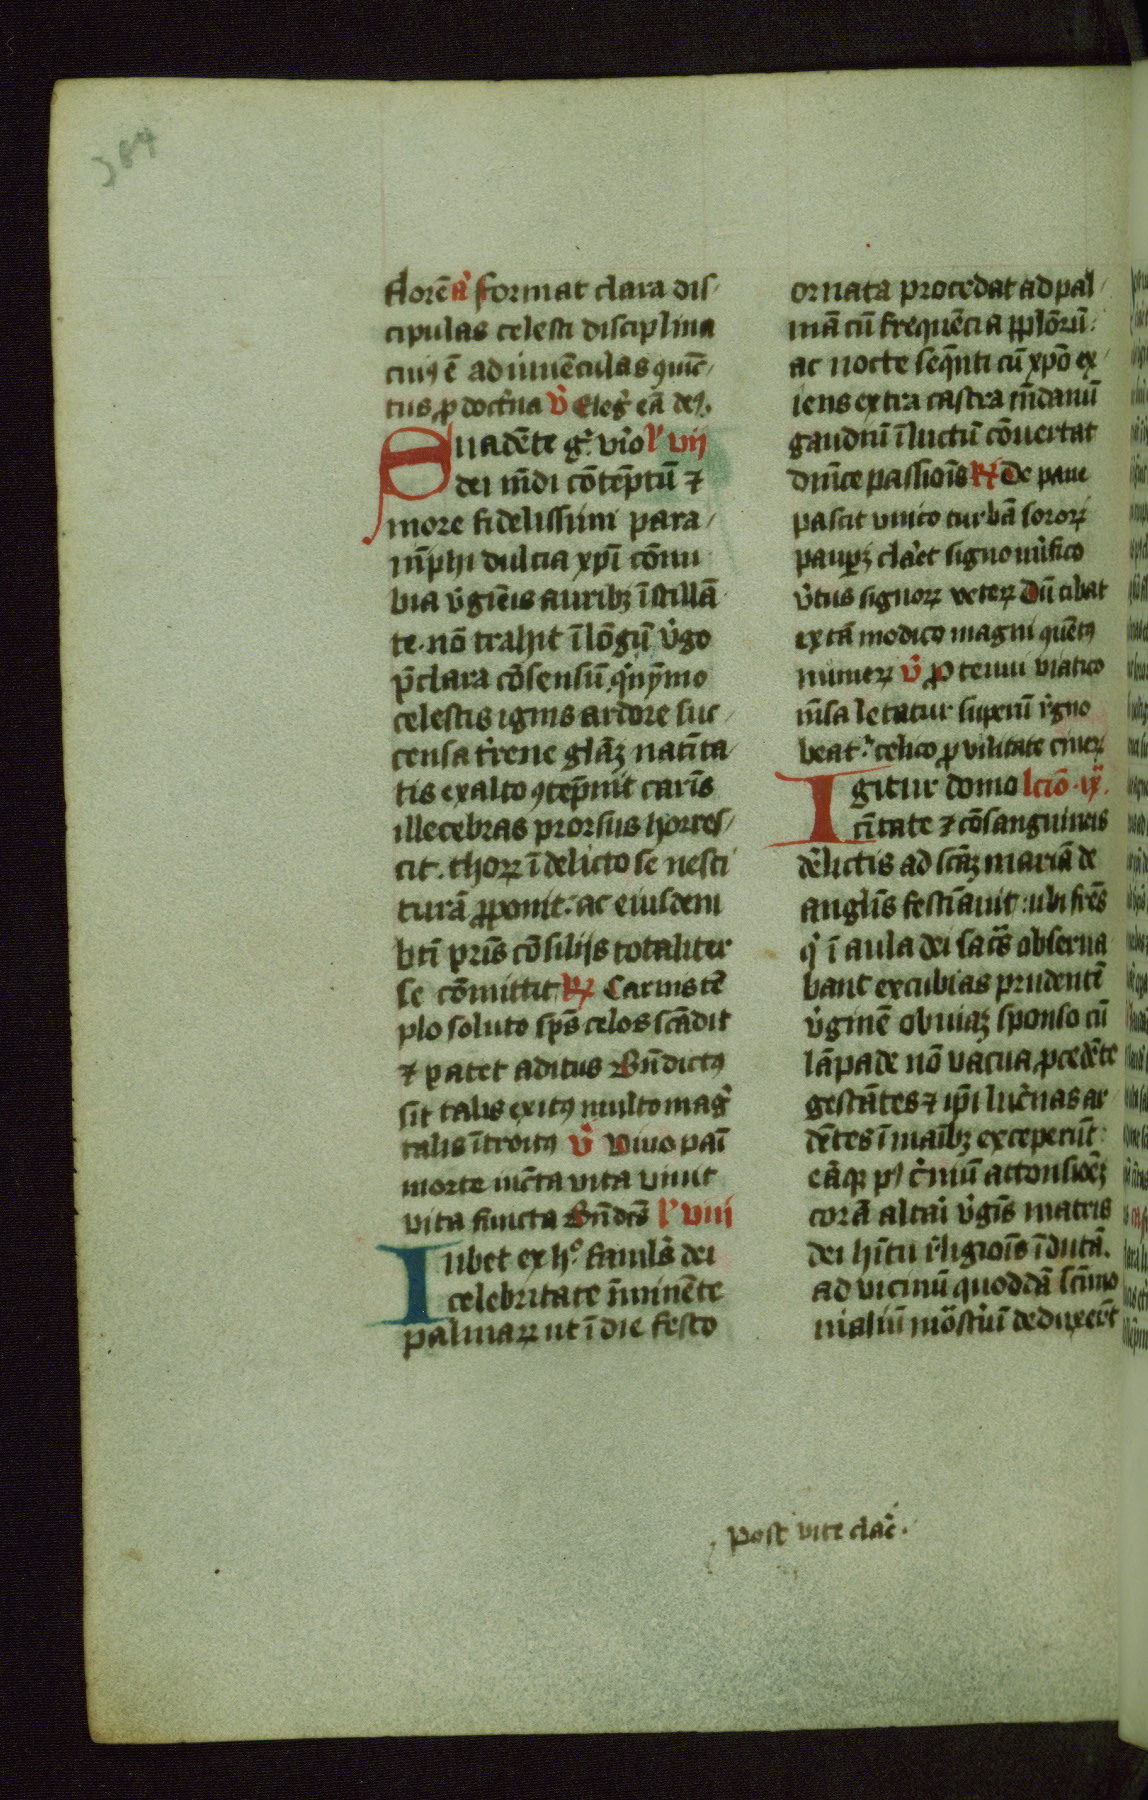 384
florē a᷎ format clara dis/
cipulas celesti disciplina
cuiꝯ ē ad iuuēculas ꝯuic̄/
tus ꝓ doctͥna v᷎ Elegͭ eā deꝯ.
Suadēte gͦ viro lͦ vij
dei mūdi cōtēptū ⁊
more fidelissimi para/
nīphi dulcia xp̄i cōnu
bia vͥgieīs auribꝫ īstillā
te. nō trahit ī lōgū vͥgo
p̄clara cōsensū. qͥnymo
celestis ignis ardore suc/
censa tͥrene glāꝫ natīta/
tis ex alto ꝯtēpnit carīs
illecebras prorsus horres/
cit. thorꝝ ī delicto se nesci
turā ꝓponit: ac eiusdem
btī prīs cōsilijs totaliter
se cōmittit ꝶ Carnis tē
plo soluto sp̄s celos scādit
⁊ patet aditus Bn̄dictꝯ
sit talis exitꝯ multo magͥ
talis ītroitꝯ v᷎ viuo paī
morte iūcta vita viuit
vita functa Bn̄dcs̄ lͦ viij
Iubet ex hͦ. famulͣs dei
celebritate īminēte
palmarꝝ ut ī die festo
ornata procedat ad pal/
mā cū frequēcia pp̄lorū:
ac nocte seq̄nti cū xp̄o ex
iens extra castra mūdanū
gaudiū ī luctū cōuertat
dn̄ice passiōis ꝶ De pane
pascit vnico turbā sororꝝ
pauꝑꝫ claͣet signo mͥfico
vͥtus signorꝝ veterꝝ Dū cibat
ex tā modico magni quētꝯ
numerꝝ v᷎ ꝓ tenui viatico
mēsa letatur superū rͥgno
beatͦ: celico ꝓ vilitate cinerꝝ
Igitur domo lcīo .ix.
ciītate ⁊ cōsanguineis
dͥelictis ad scāꝫ mariā de
anglis festīauit: ubi frēs
qͥ ī aula dei sacͣs obserua
bant excubias prudentē
vͥginē obuiaꝫ sponso cū
lāpade nō vacua ꝓcedēte
gestātes ⁊ ip̄i lucͥnas ar
dētes ī maībꝫ exceperūt
eāqꝫ pꝰ cͥniū attonsiōeꝫ
corā altaͥi vͥgīs matris
dei hītu rͥligiōis īdutā.
ad vicinū quoddā scīmo
nialiū mōstͥiū deduxerūt
post vite claͥ.